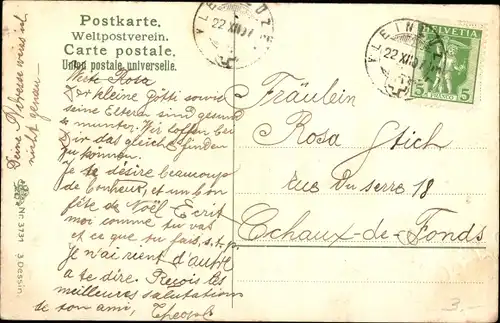 Postkarte.
Weltpostverein.
Carte postale.
Union postale universelle.
22 XII 07
22 XII 07
HELVETIA
5 FRANCO 5
Deine Adresse weiss ich
nicht genau.
Werte Rosa
Der kleine Götti sowie
seine Eltern sind gesund
u. munter. Wir hoffen bei
Dir das gleiche finden
zu können.
Je te désire beaucoup
de bonheur, et un bon
fête de Noël. Ecrit
moi comme tu vas
et ce que tu fais, s.t.p.
Je n'ai rient d'autre
a te dire. Reçois les
meilleures salutations
de ton ami,
Fräulein
Rosa Stich
rue du serre 18
Echaux-de-Fonds
Nr. 3731 3 Dessin.
3.-